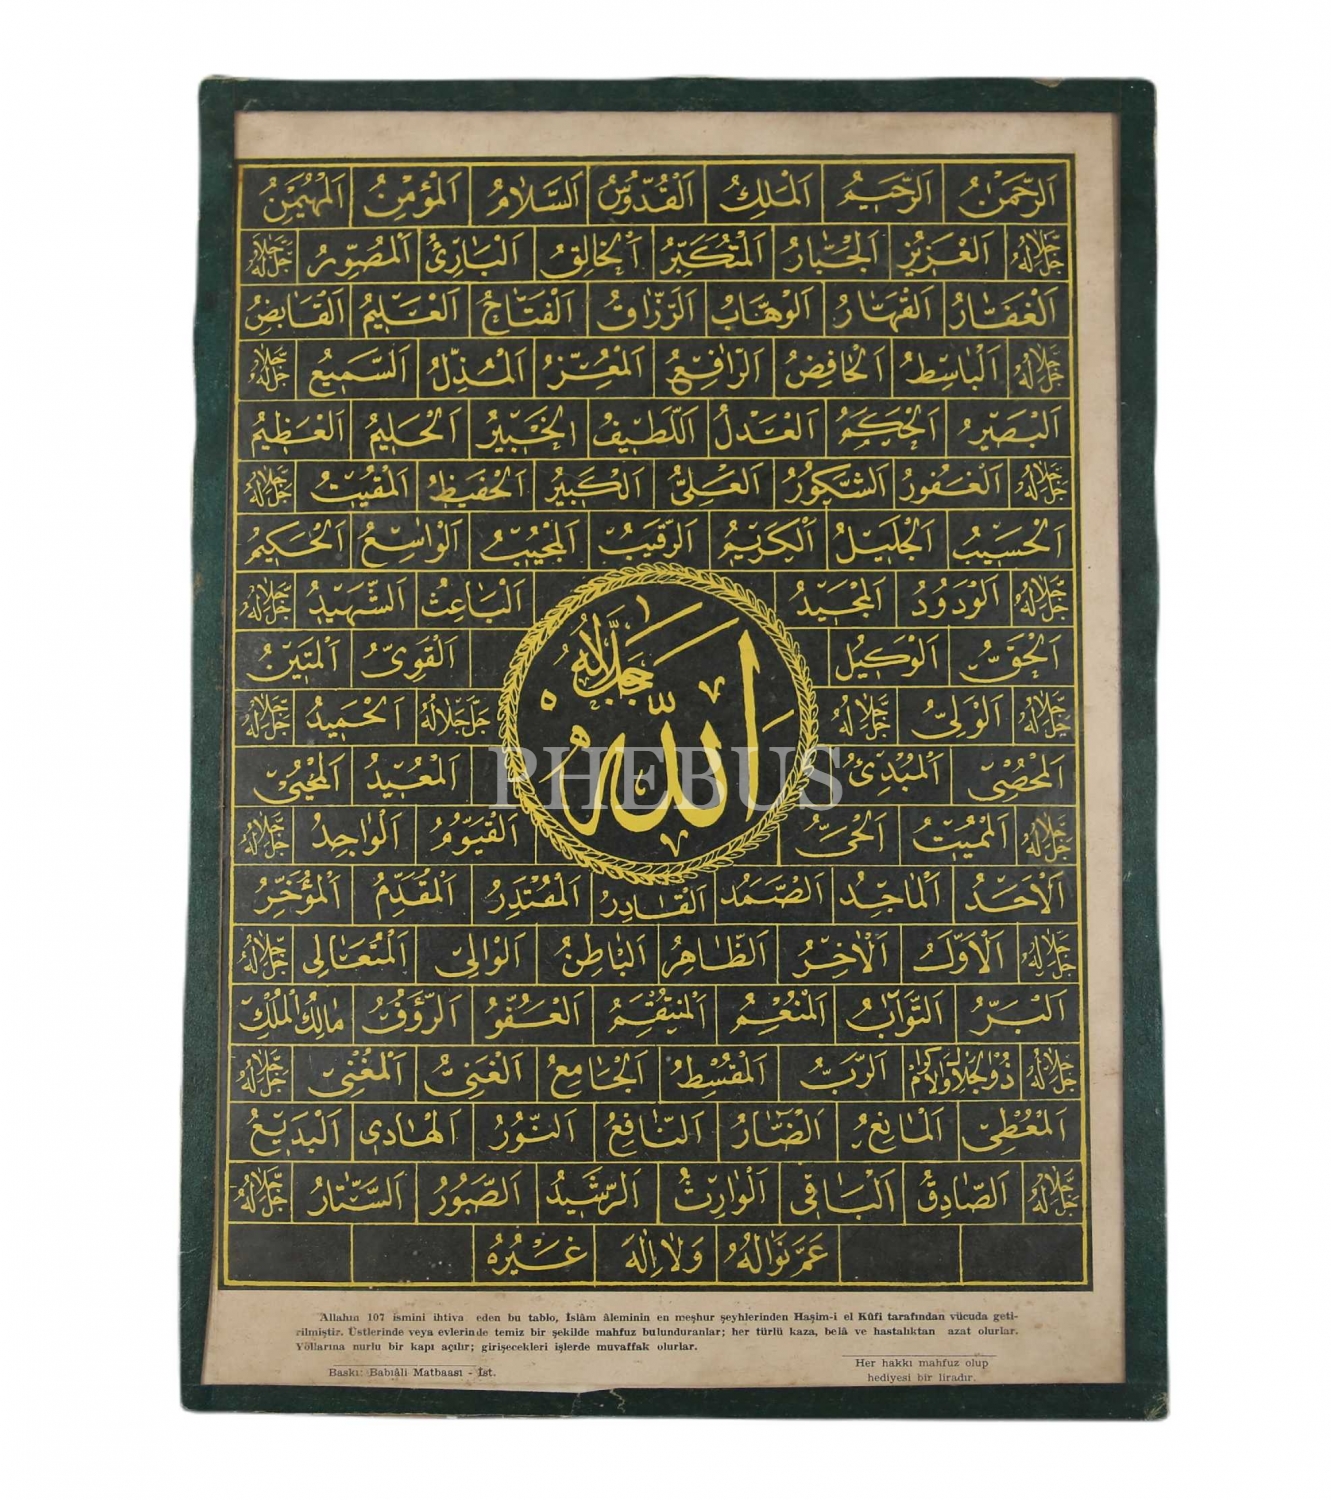 اَلرَّحْمٰنُ اَلرَّحِيمُ اَلْمَلِكُ اَلْقُدُّوسُ اَلسَّلَامُ اَلْمُؤْمِنُ اَلْمُهَيْمِنُ
جَلَّ جَلَالُهُ اَلْعَزِيزُ اَلْجَبَّارُ اَلْمُتَكَبِّرُ اَلْخَالِقُ اَلْبَارِئُ اَلْمُصَوِّرُ جَلَّ جَلَالُهُ
اَلْغَفَّارُ اَلْقَهَّارُ اَلْوَهَّابُ اَلرَّزَّاقُ اَلْفَتَّاحُ اَلْعَلِيمُ اَلْقَابِضُ
جَلَّ جَلَالُهُ اَلْبَاسِطُ اَلْخَافِضُ اَلرَّافِعُ اَلْمُعِزُّ اَلْمُذِلُّ اَلسَّمِيعُ جَلَّ جَلَالُهُ
اَلْبَصِيرُ اَلْحَكَمُ اَلْعَدْلُ اَللَّطِيفُ اَلْخَبِيرُ اَلْحَلِيمُ اَلْعَظِيمُ
جَلَّ جَلَالُهُ اَلْغَفُورُ اَلشَّكُورُ اَلْعَلِيُّ اَلْكَبِيرُ اَلْحَفِيظُ اَلْمُقِيتُ جَلَّ جَلَالُهُ
اَلْحَسِيبُ اَلْجَلِيلُ اَلْكَرِيمُ اَلرَّقِيبُ اَلْمُجِيبُ اَلْوَاسِعُ اَلْحَكِيمُ
جَلَّ جَلَالُهُ اَلْوَدُودُ اَلْمَجِيدُ اَلْبَاعِثُ اَلشَّهِيدُ جَلَّ جَلَالُهُ
اَلْحَقُّ اَلْوَكِيلُ اَلْقَوِيُّ اَلْمَتِينُ
جَلَّ جَلَالُهُ اَلْوَلِيُّ جَلَّ جَلَالُهُ جَلَّ جَلَالُهُ اَلْحَمِيدُ جَلَّ جَلَالُهُ
اَللّٰهُ جَلَّ جَلَالُهُ
اَلْمُحْصِي اَلْمُبْدِئُ اَلْمُعِيدُ اَلْمُحْيِي
جَلَّ جَلَالُهُ اَلْمُمِيتُ اَلْحَيُّ اَلْقَيُّومُ اَلْوَاجِدُ جَلَّ جَلَالُهُ
اَلْاَحَدُ اَلْمَاجِدُ اَلصَّمَدُ اَلْقَادِرُ اَلْمُقْتَدِرُ اَلْمُقَدِّمُ اَلْمُؤَخِّرُ
جَلَّ جَلَالُهُ اَلْاَوَّلُ اَلْاٰخِرُ اَلظَّاهِرُ اَلْبَاطِنُ اَلْوَالِي اَلْمُتَعَالِي جَلَّ جَلَالُهُ
اَلْبَرُّ اَلتَّوَّابُ اَلْمُنْعِمُ اَلْمُنْتَقِمُ اَلْعَفُوُّ اَلرَّؤُفُ مَالِكُ الْمُلْكِ
جَلَّ جَلَالُهُ ذُو الْجَلَالِ وَالْاِكْرَامِ اَلرَّبُّ اَلْمُقْسِطُ اَلْجَامِعُ اَلْغَنِيُّ اَلْمُغْنِي جَلَّ جَلَالُهُ
اَلْمُعْطِي اَلْمَانِعُ اَلضَّارُّ اَلنَّافِعُ اَلنُّورُ اَلْهَادِي اَلْبَدِيعُ
جَلَّ جَلَالُهُ اَلصَّادِقُ اَلْبَاقِي اَلْوَارِثُ اَلرَّشِيدُ اَلصَّبُورُ اَلسَّتَّارُ جَلَّ جَلَالُهُ
عَمَّ نَوَالُهُ وَلَا اِلٰهَ غَيْرُهُ
PHEBUS
Allahın 107 ismini ihtiva eden bu tablo, İslâm âleminin en meşhur şeyhlerinden Haşim-i el Kûfi tarafından vücuda geti-
rilmiştir. Üstlerinde veya evlerinde temiz bir şekilde mahfuz bulunduranlar; her türlü kaza, belâ ve hastalıktan azat olurlar.
Yollarına nurlu bir kapı açılır; girişecekleri işlerde muvaffak olurlar.
Baskı: Babıâli Matbaası - İst.
Her hakkı mahfuz olup
hediyesi bir liradır.